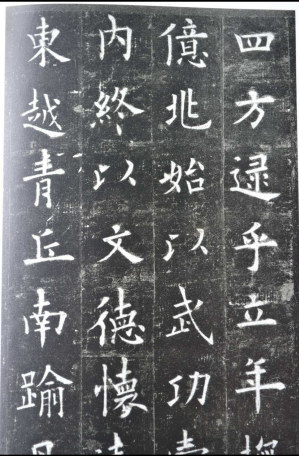 四方逮乎立年
億兆始以武功
內終以文德懷
東越青丘南踰